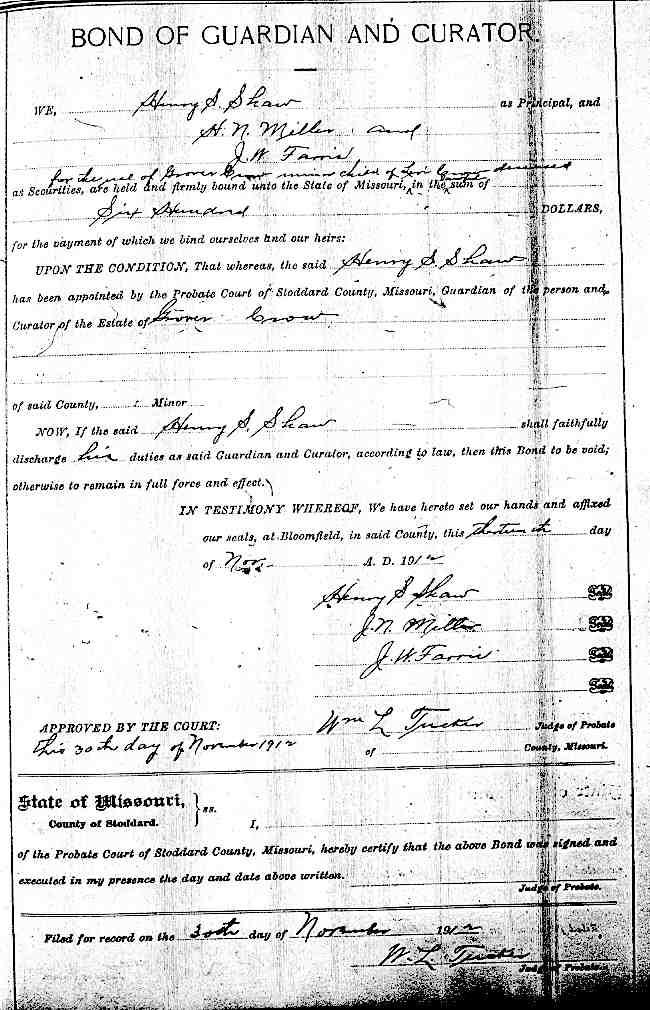 BOND OF GUARDIAN AND CURATOR.
WE, Henry S. Shaw as Principal, and
H. N. Miller and
J. W. Farris
for the use of Grover Crow minor child of Levi Crow deceased
as Securities, are held and firmly bound unto the State of Missouri, in the sum of
Six Hundred DOLLARS,
for the payment of which we bind ourselves and our heirs:
UPON THE CONDITION, That whereas, the said Henry S. Shaw
has been appointed by the Probate Court of Stoddard County, Missouri, Guardian of the person and
Curator of the Estate of Grover Crow
of said County, Minor
NOW, If the said Henry S. Shaw shall faithfully
discharge his duties as said Guardian and Curator, according to law, then this Bond to be void;
otherwise to remain in full force and effect.
IN TESTIMONY WHEREOF, We have hereto set our hands and affixed
our seals, at Bloomfield, in said County, this day
of Nov. A. D. 1912
Henry S Shaw Seal
J. N. Miller Seal
J. W. Farris Seal
Seal
APPROVED BY THE COURT: Wm L Tucker Judge of Probate
this 30th day of November 1912 of County, Missouri.
State of Missouri, } ss.
County of Stoddard. I,
of the Probate Court of Stoddard County, Missouri, hereby certify that the above Bond was signed and
executed in my presence the day and date above written.
Judge of Probate.
Filed for record on the 30th day of November 1912
W. L. Tucker
Judge of Probate.